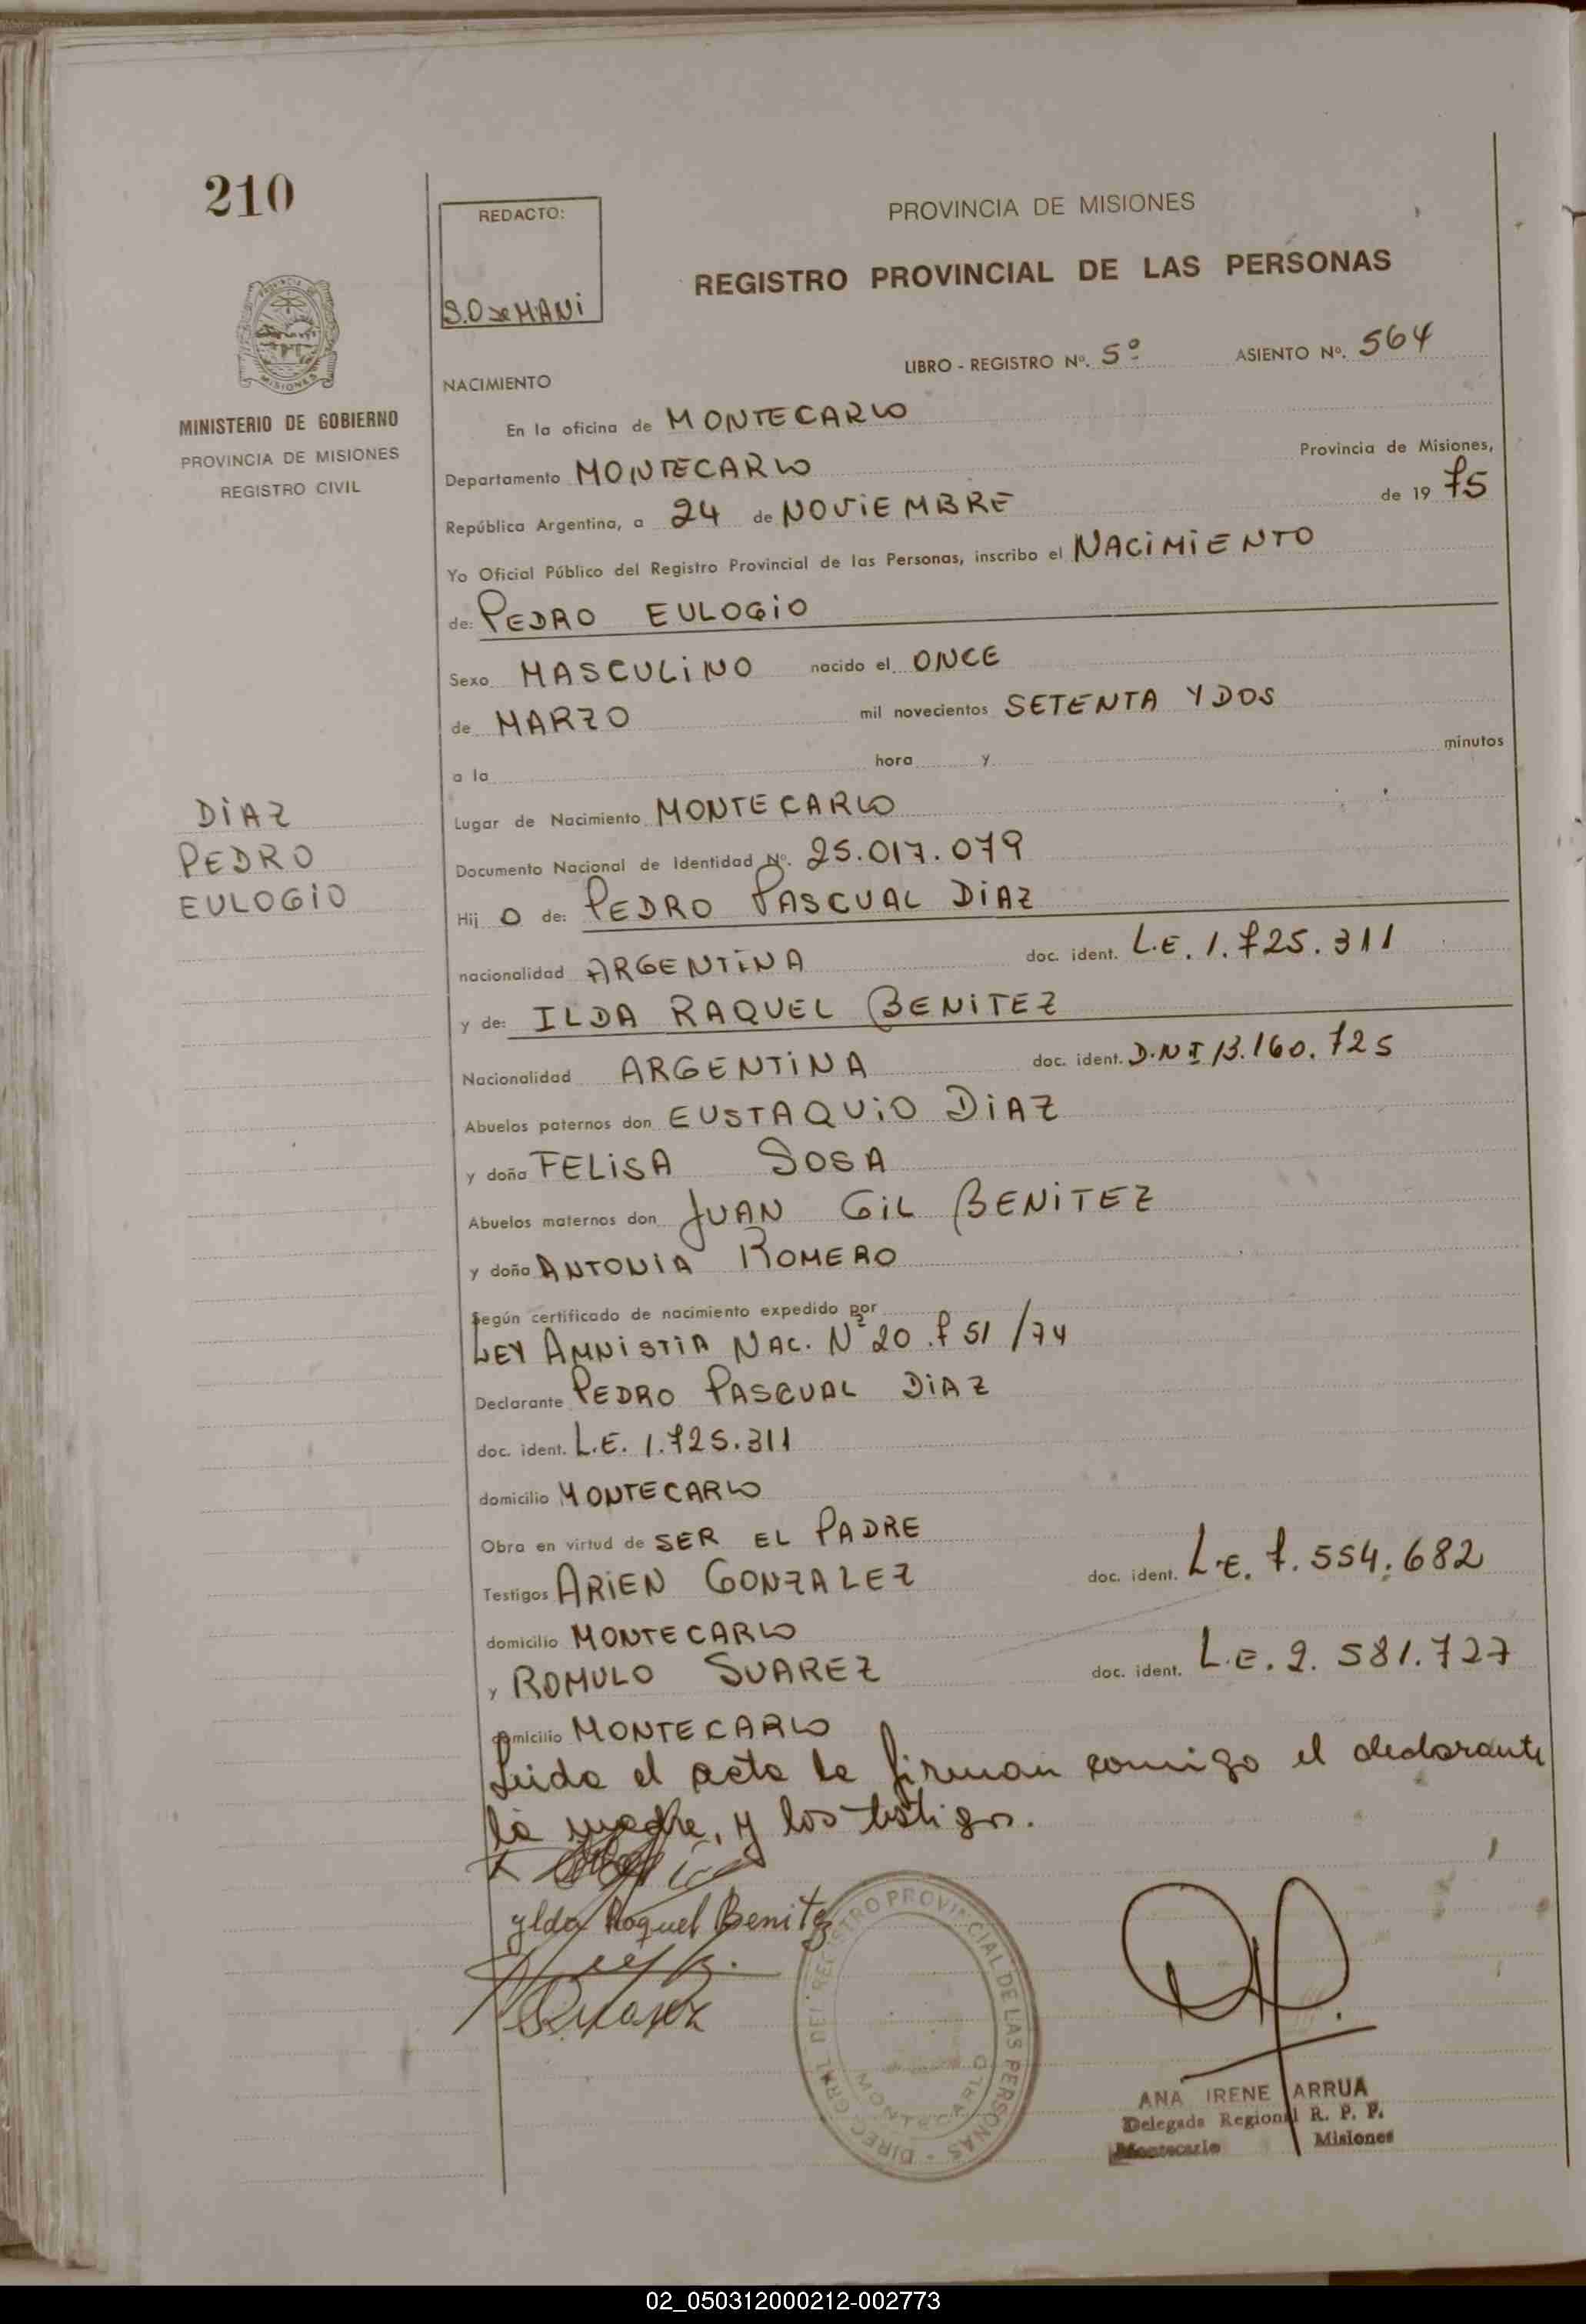 210
REDACTO:
PROVINCIA DE MISIONES
REGISTRO PROVINCIAL DE LAS PERSONAS
LIBRO - REGISTRO Nº. 5º ASIENTO Nº. 564
NACIMIENTO
MINISTERIO DE GOBIERNO
PROVINCIA DE MISIONES
REGISTRO CIVIL
En la oficina de MONTECARLO
Departamento MONTECARLO Provincia de Misiones,
República Argentina, a 24 de NOViEMBRE de 19 75
Yo Oficial Público del Registro Provincial de las Personas, inscribo el NACiMiENTO
de: PEDRO EULOGiO
Sexo MASCULiNO nacido el ONCE
de MARZO mil novecientos SETENTA Y DOS
a la hora y minutos
DiAZ
PEDRO
EULOGiO
Lugar de Nacimiento MONTECARLO
Documento Nacional de Identidad Nº. 25.017.079
Hij O de: PEDRO PASCUAL DiAZ
nacionalidad ARGENTiNA doc. ident. L.E. 1.725.311
y de: ILDA RAQUEL BENiTEZ
Nacionalidad ARGENTiNA doc. ident. D.N I 13.160.725
Abuelos paternos don EUSTAQUiO DiAZ
y doña FELiSA SOSA
Abuelos maternos don JUAN GiL BENiTEZ
y doña ANTONiA ROMERO
Según certificado de nacimiento expedido por
LEY AMNiSTiA NAC. Nº 20.751/74
Declarante PEDRO PASCUAL DiAZ
doc. ident. L.E. 1.725.311
domicilio MONTECARLO
Obra en virtud de SER EL PADRE
Testigos ARiEN GONZALEZ doc. ident. L.E. 7.554.682
domicilio MONTECARLO
y ROMULO SUAREZ doc. ident. L.E. 2.581.727
domicilio MONTECARLO
Leida el acta la firman comigo el declarante
la madre, y los testigos.
ylda Raquel Benitez
DIREC. GRAL. DEL REGISTRO PROVINCIAL DE LAS PERSONAS
MONTECARLO
ANA IRENE ARRUA
Delegada Regional R. P. P.
Montecarlo Misiones
02_050312000212-002773